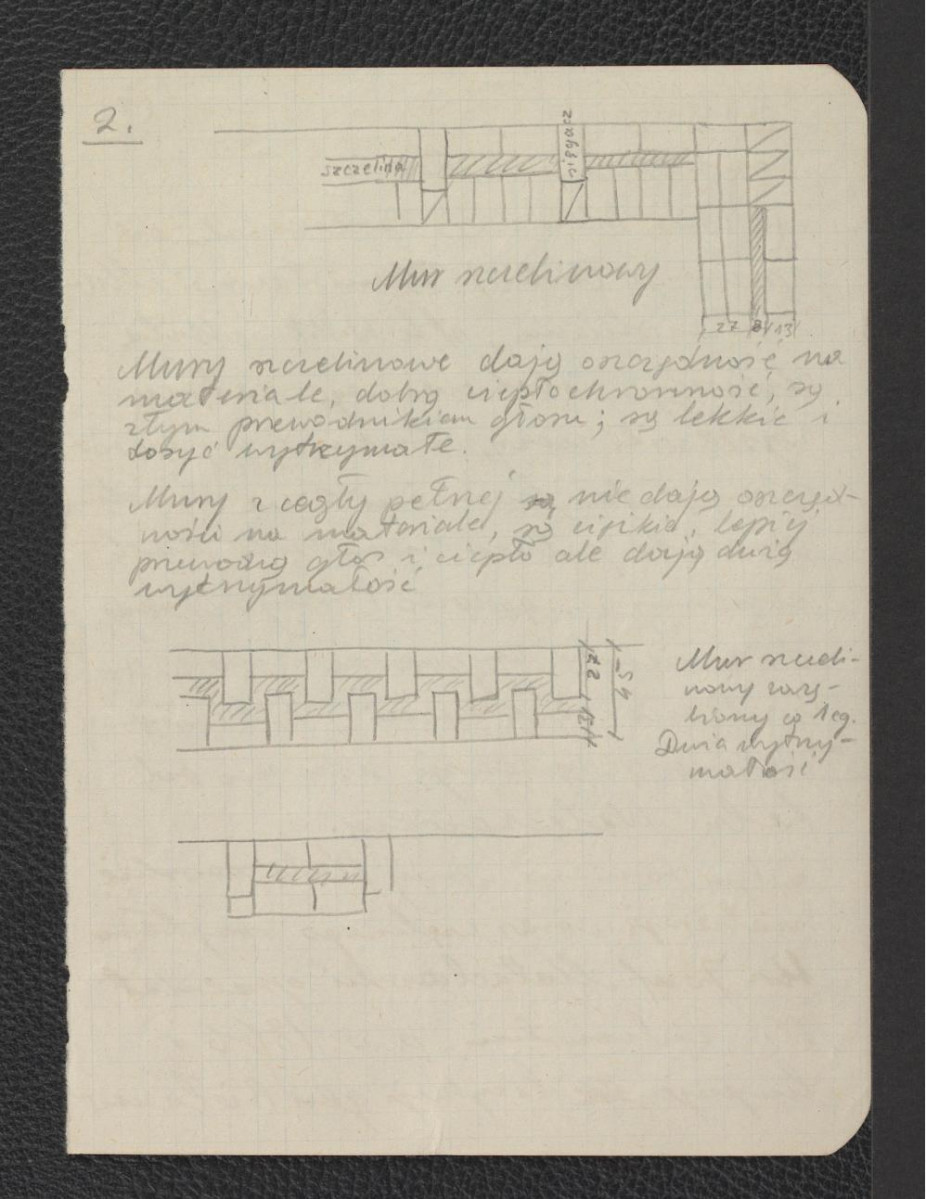 2.
szczelina
zazębić
Mur szczelinowy
27 8 13
Mury szczelinowe dają oszczędność na
materiale, dobrą ciepłochronność, są
złym przewodnikiem głosu; są lekkie i
dosyć wytrzymałe.
Mury z cegły pełnej są nie dają oszczęd-
ności na materiale, są ciężkie, lepiej
przewodzą głos i ciepło ale dają dużą
wytrzymałość
Mur szczeli-
nowy zazę-
biony co 1 cg.
Duża wytrzy-
małość